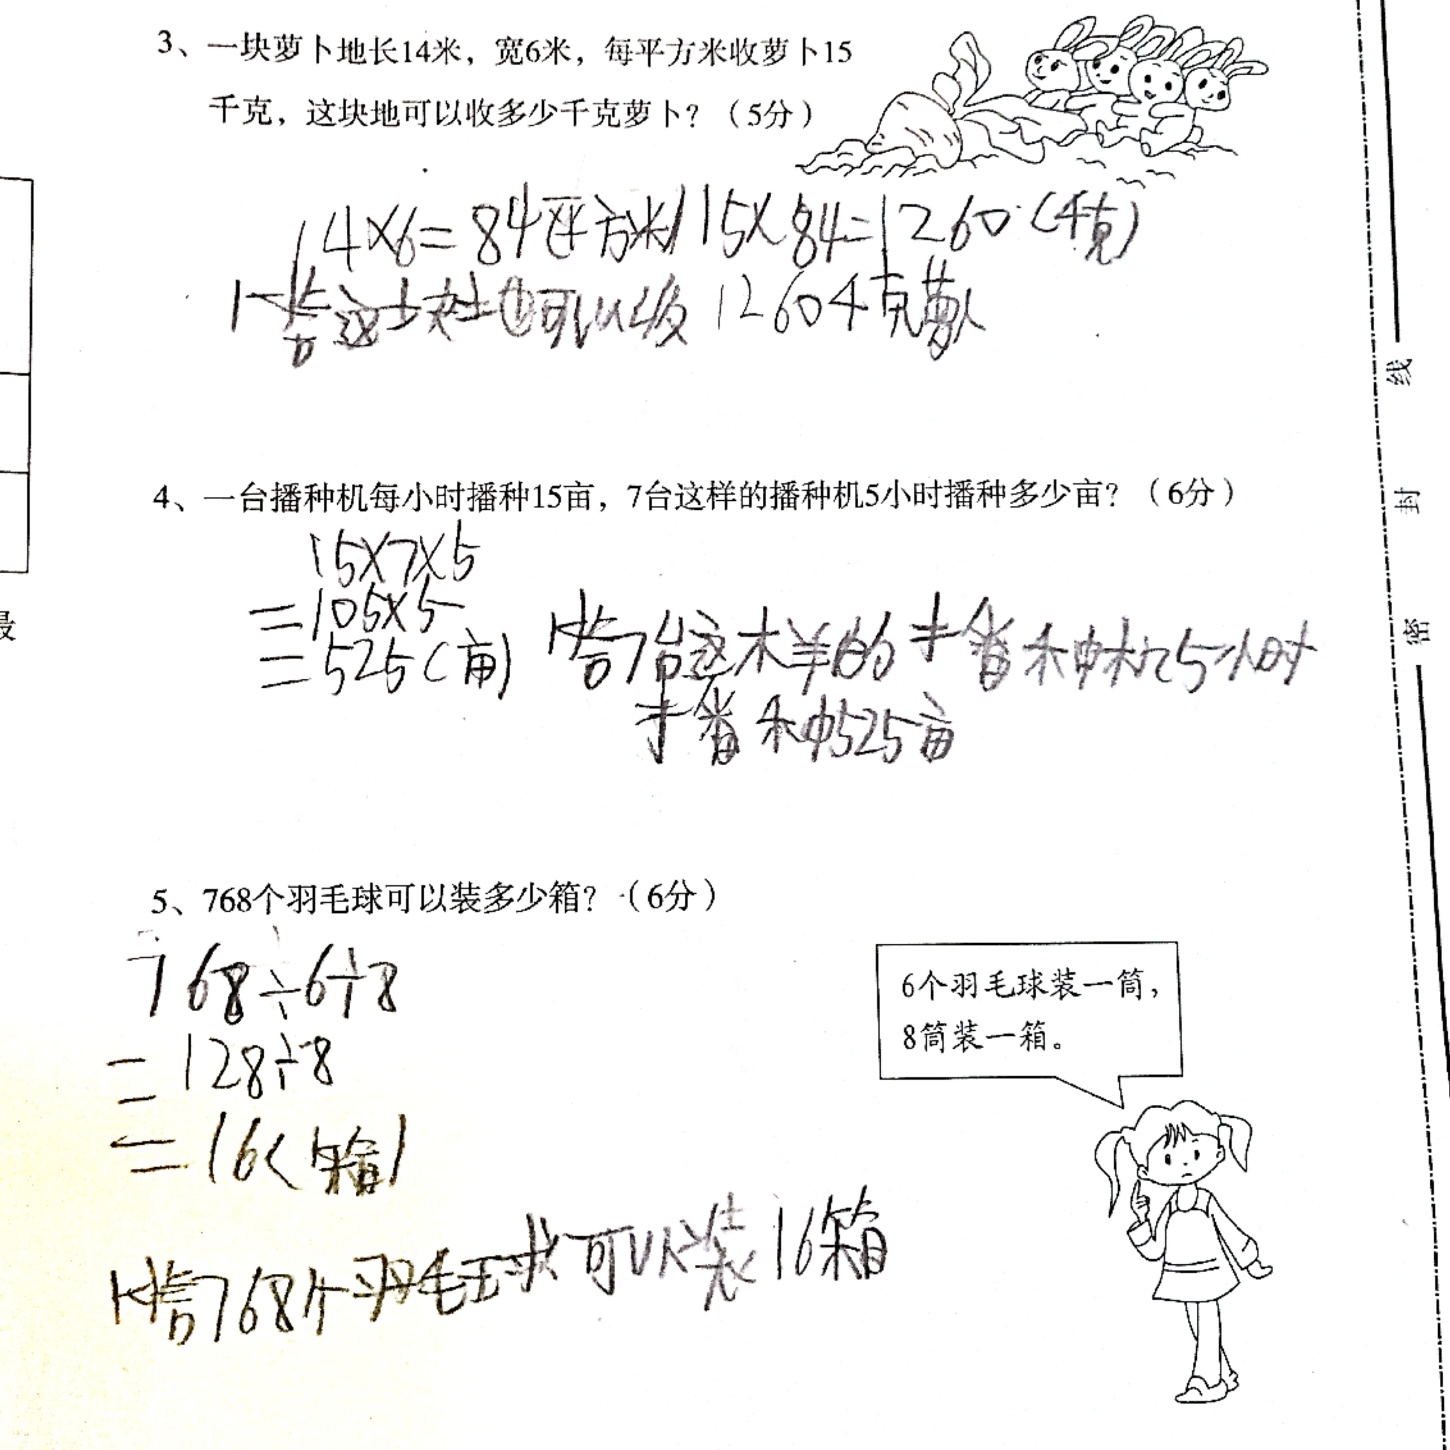 3、一块萝卜地长14米，宽6米，每平方米收萝卜15
千克，这块地可以收多少千克萝卜？（5分）
14×6=84(平方米) 15×84=1260(千克)
答这块地可以收1260千克萝卜
4、一台播种机每小时播种15亩，7台这样的播种机5小时播种多少亩？（6分）
15×7×5
=105×5
=525(亩)
答7台这样的播种机5小时
播种525亩
5、768个羽毛球可以装多少箱？（6分）
768÷6÷8
=128÷8
=16(箱)
答768个羽毛球可以装16箱
6个羽毛球装一筒，
8筒装一箱。
线
封
密
最